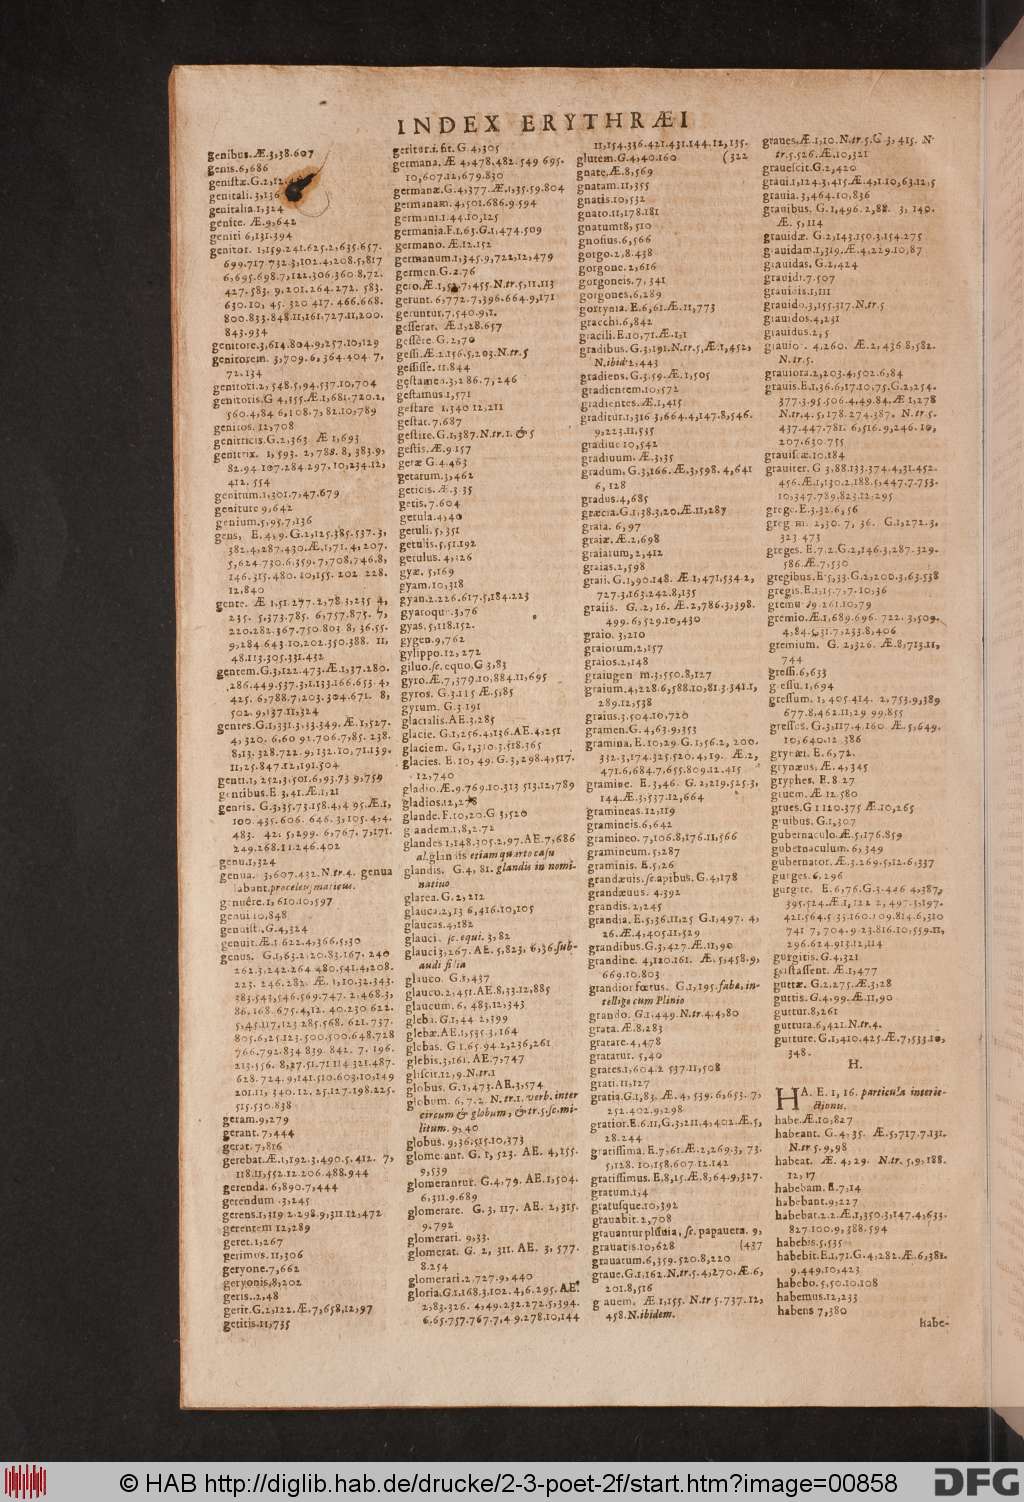 INDEX ERYTHRÆI
genibus. Æ.3,38.607
genis.6,686
genistæ.G.2,12
genitali.3,136
genitalia.1,324
genite. Æ.9,642
geniti 6,131.394
genitor. 1,159.241.625.2,635.657.
699.717 732.3,102.4,208.5,817
6,695.698.7,122.306.360.8,72.
427.583. 9,201.264.272. 583.
630.10, 45. 320 417. 466.668.
800.833.848.11,161.727.11,200.
843.934
genitore.3,614.804.9,257.10,129
genitorem. 3,709.6,364.404 7,
72.134
genitori.2,548.5,94.537.10,704
genitoris.G 4,355.Æ.1,681.720.2,
560.4,84 6,108.7,82.10,789
genitos. 12,708
genitricis.G.2,363 Æ 1,693
genitrix. 1,593. 2,788. 8, 383.9,
82.94.107.284.297.10,234.12,
412. 554
genitum.1,301.7,47.679
geniture 9,642
genium.5,95.7,136
gens, E. 4,9.G.2,125.385.537.3,
382.4,287.430.Æ.1,71.4,207.
5,624.730.6.359.7,708,746.8,
146.315.480.10,155. 202 228.
12,840
gente. Æ 1.51.277.2,78.3,235 4,
235. 5.373.785. 6,757.875. 7,
220.282.367.750.803 8, 36.55.
9,284.643.10,202.350.388. 11,
48.113.305.331.432
gentem.G.3,122.473.Æ.1,37.280.
286.449.537.3,1.133.166.653.4,
425. 6,788.7,203.304.671. 8,
502. 9,137.11,324
gentes.G.1,331.3.33.349.Æ.1,527.
4,320. 6.60 92.706.7,85. 238.
8,13.328.722.9,132.10,71.139.
11,25.847.12,191.504
genti.1,252,3.501.6,93.73 9,759
gentibus.E 3,41.Æ.1,21
gentis. G.3,35.73.158.4,4 95.Æ.1,
100.435.606. 646.3,105.4,4.
483. 42. 5,299. 6,767. 7,171.
249.268.11.246.402
genu.1,324
genua. 3,607.432.N.tr.4. genua
labant.proceleusmaticus.
genuêre.1,610.10,597
genui 10,848
genuist.G.4,324
genuit.Æ.1 622.4,366.5,30
genus. G.1,63.2.20.83.167. 240
262.3.242.264 480.541.4,208.
223. 246.282. Æ. 1,10.32.343.
283.543,546.569.747. 2.468.3,
86,168.675.4,12. 40.230 622.
5,45.117,123 285.568. 621.737.
805.6,25.123.500.500.648.728
766.792.834 839. 842. 7. 196.
213.556. 8,27.51.71.114 321.487.
628.724.9,141.510.603.10,149
201.11, 340.12. 25.127.198.225.
515.530.838
geram.9,279
gerant.7,444
gerat.7,816
gerebat.Æ.1,192.3.490.5.412. 7,
118.11,552.12 206.488.944
gerenda. 6,890.7,444
gerendum .3,245
gerens.1,319.2.298.9,311.12,472
gerentem 12,289
geret.1,267
gerimus.11,306
geryone.7,662
geryonis.8,202
geris..2,48
gerit.G.2,122.Æ.7,658,12,97
geritis.11,735
geritor.i. fit.G.4,305
germana. Æ 4,478.482.549 695.
10,607.12,679.830
germanæ.G.4,377.Æ.1,35.59.804
germanam. 4,501.686.9.594
germani.1.44.10,125
germania.E.1,63.G.1,474.509
germano. Æ.12.152
germanum.1,345.9,722,12,479
germen.G.2.76
gero.Æ.1,52.7,455.N.tr.5,11.113
gerunt. 6,772.7,396.664.9,171
geruntur.7,540.9,1.
gesserat. Æ.1,28.657
gessêre.G.2,70
gessi.Æ.2.156.5,203.N.tr.5
gessisse.11.844
gestamen.3,286.7,246
gestamus.1,571
gestare 1.340 12,211
gestat.7,687
gestire.G.1,387.N.tr.1. & 5
gestis.Æ.9 157
getæ G.4.463
getarum.3,462
geticis. Æ.3 35
getis.7.604
getula.4,40
getuli.5,351
getulis.5,51.192
getulus. 4,326
gyæ. 5,169
gyam.10,318
gyan.2.226.617.5,184.223
gyaroque.3,76
gyas.5,118.152.
gygen.9,762
gylippo.12, 272
giluo.sc.equo.G 3,83
gyro.Æ.7,379.10,884.11,695
gyros. G.3.115 Æ.5,85
gyrum. G.3 191
glacialis.AE.3.285
glacie. G.1,256.4,136.AE.4,251
glaciem. G, 1,310.3.318.365
glacies. E. 10, 49. G. 3, 298.4,517.
12,740
gladio.Æ.9.769.10.313 513.12,789
gladios.12,278
glande. F.10,20.G 3,520
glandem.1,8,2.72
glandes 1,148.305.2,97.AE.7,686
al.glandis etiam quarto casu
glandis. G.4, 81. glandis in nomi-
natiuo
glarea.G.2,212
glauca.2,13 6,416.10,105
glaucas.4,182
glauci. sc. equi. 3, 82
glauci 3,267. AE. 5,823. 6,36.sub-
audi filia
glauco. G.1,437
glauco.2,451.AE.8,33.12,885
glaucum. 6, 483.12,343
gleba. G.1,44 2,399
glebæ.AE.1,535.3,164
glebas. G 1.65 94 2,236,261
glebis.3,161. AE.7,747
gliscit.12,9.N.tr.1
globus. G.1,473.AE.3,574
globum. 6,7.2 N.tr.1. verb. inter
circum & globum, & tr.5.sc.mi-
litum. 9,40
globus. 9,36.515.10.373
glomerant. G. 1, 523. AE. 4,155.
9,539
glomerantur. G.4,79. AE.1,504.
6,311.9.689
glomerare. G.3, 117. AE. 2, 315.
9,792
glomerari. 9,33.
glomerat. G. 2, 311. AE. 3, 577.
8.254
glomerari.2.727.9,440
gloria.G.1.168.3.102.4,6.295.AE.
2,83.326. 4,49.232.272.5,394.
6,65.757.767.7,4 9.278.10,144
11,154.336.421.431.144.12,135.
(322
glutem.G.4,40.160
gnate.Æ.8,569
gnatam.11,355
gnatis.10,532
gnato.11,178.181
gnatum 8,510
gnosius.6,566
gorgo.2,8.438
gorgone. 2,616
gorgoneis.7, 341
gorgones.6,289
gortynia. E.6,61.Æ.11,773
gracchi.6,842
gracili.E.10,71.Æ.1,1
gradibus.G.3,191.N.tr.5,Æ.1,452,
N.ibid 2,443
gradiens. G.3.59.Æ.1,505
gradientem.10,572
gradientes.Æ.1,415
graditur.1,316 3,664.4,147.8,546.
9,223.11,535
graduc 10,542
graduum. Æ.3,35
gradum.G.3,166.Æ.3,598. 4,641
6,128
gradus.4,685
græcia.G.1,38.3,20.Æ.11,287
graia. 6,97
graiæ. Æ.2,698
graiarum,2,412
graias.2,598
graii.G.1,90.148. Æ 1,471,534 2,
727.3,163.242.8,135
graiis. G. 2, 16. Æ.2,786.3,398.
499.6,529.10,430
graio. 3,210
graiorum.2,157
graios.2,148
graiugen m.3,550.8,127
graium.4,228.6,588.10,81.3.341.1,
289.12,538
graius.3.504.10,720
gramen.G.4,63.9,353
gramina. E.10,29 G.1,56.2, 200.
332.3,174.325.520.4,19. Æ.2,
471.6,684.7,655.809.12.415
gramine. E.3,46. G. 2,219.525.3,
144.Æ.3,537.12,664
gramineas.12,119
gramineis.6,642
gramineo. 7,106.8,176.11,566
gramineum. 5,287
graminis. E.5,26
grandæuis.sc.apibus. G.4,178
grandæuus. 4.392
grandis. 2,245
grandia. E.5,36.11,25 G.1,497. 4,
26.Æ.4,405.11,529
grandibus.G.3,427.Æ.11,90
grandine. 4,120.161. Æ. 5,458.9,
669.10.803
grandior fœtus. G.1,195.faba, in-
tellige cum Plinio
grando. G.1,449.N.tr.4,4,80
grata. Æ.8.283
gratare. 4,478
gratatur. 5,40
grates.1,604.2 537.11,508
grati.11,127
gratia.G.1,83. Æ. 4, 539. 6,653. 7,
252.402.9,298
gratior.E.6.11,G.3,211.4,402.Æ.5,
28.244
gratissima. E.7,61.Æ.2,269.3, 73.
5,128. 10,158.607 12.142
gratissimus. E.8,15.Æ.8,64.9,327.
gratum.1,4
gratusque.10,392
grauabit. 2,708
grauantur pluuia, sc. papauera. 9,
(437
grauatis.10,628
grauatum.6,359.520.8,220
graue.G.1,162. N.tr.5.4,270.Æ.6,
201.8,516
grauem. Æ.1,155. N.tr 5.737.12,
458.N.ibidem.
graues.Æ.1,10.N.tr.5.G 3, 415. N
tr.5.526.Æ.10,321
grauescit.G.2,420
graui.1,124.3,415.Æ.4,1.10,63.12,5
grauia. 3,464.10,836
grauibus. G.1,496. 2,88. 3, 140.
Æ. 5,114
grauidæ. G.2,143.150.3.154.275
grauidam.1,319.Æ.4,229.10,87
grauidas. G.2,424
grauidi.7.507
grauidis.1,111
grauido.3,155.317.N.tr.5
grauidos.4,231
grauidus.2,5
grauior. 4.260. Æ.2,436 8,582.
N.tr.5.
grauiora.2,203.4,502.6,84
grauis.E.1,36.6,17.10,75.G.2,254.
377.3.95.506.4,49.84.Æ 1,278
N.tr.4.5,178.274.387. N.tr.5.
437.447.781. 6,516.9,246.10,
207.630 755
grauiscæ.10.184
grauiter. G 3,88.133.374.4,31.452.
456.Æ.1,130.2.188.5,447.7.753.
10,347.789.823.12.295
grege.E.3.32.6,56
gregem. 2,30. 7, 36. G.1,272.3,
323 473
greges. E.7.2.G.2,146.3,287.329.
586.Æ.7,530
gregibus.E 5,33.G.2,200.3,63.538
gregis.E.1,15.7,7.10,36
gremio.Æ.1,689.696. 722. 3,509.
4,84.5,31.7,233.8,406
gremium. G. 2,326. Æ.8,713.11,
744
gressi.6,633
gressu.1,694
gressum. 1, 405 414. 2,753.9,389
677.8,462.11,29 99.855
gressus. G.3,117.4.160 Æ.5,649.
10,640.12 386
grynæi. E.6,72.
grynæus. Æ.4,345
gryphes. E.8 27
gruem. Æ 12.580
grues.G 1 120.375 Æ.10,265
gruibus. G.1,307
gubernaculo.Æ.5,176.859
gubernaculum. 6,349
gubernator. Æ.3.269.5,12.6,337
gurges.6.296
gurgite. E.6,76.G.3.446 4,387,
395.524.Æ.1,122 2, 497.3,197.
421.564.5 35.160.209.814.6,310
741 7, 704.9 23.816.10,559.11,
296.624.913.12,114
gurgitis. G.4,321
gustassent. Æ.1,477
guttæ. G.2.275.Æ.3,28
guttis.G.4,99. Æ.11,90
guttur.8,261
guttura.6,421.N.tr.4.
gutture. G.1,410.425.Æ.7,533.10,
348.
H.
HA. E. 1, 16. particula interie-
ctionis.
habe.Æ.10,827
habeant. G. 4, 35. Æ.5,717.7.131.
N.tr 5.9,98
habeat. Æ. 4, 29. N.tr. 5, 9, 188.
12,17
habebam. E.7,14
habebant.9,227
habebat.2.2.Æ.1,350.3,147.4,633.
827.100.9,388.594
habebis.5,535
habebit.E.1,71.G.4,282.Æ.6,381.
9.449.10,423
habebo.5,50.10.108
habemus.12,233
habens 7,380
habe-
© HAB http://diglib.hab.de/drucke/2-3-poet-2f/start.htm?image=00858
DFG